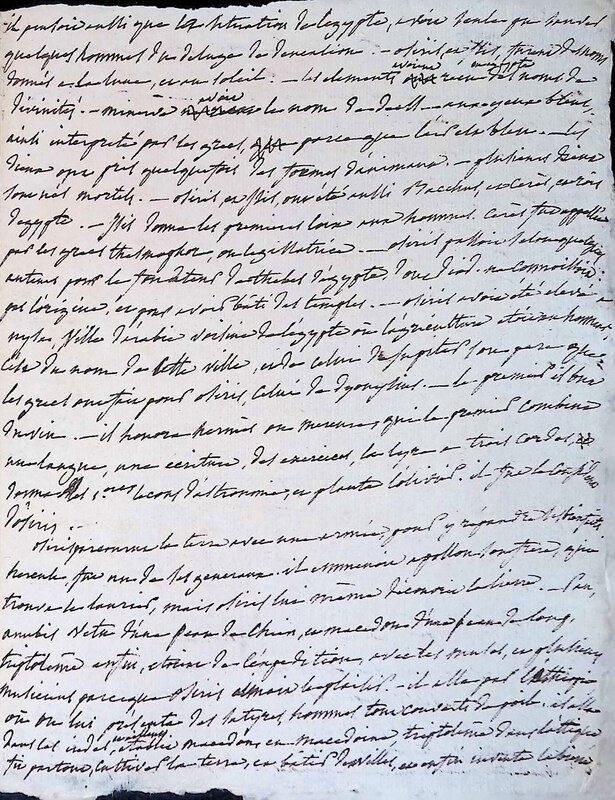 il pensoit aussi que la situation de l'egypte, avoit seule pu sauver
quelques hommes du deluge de deucalion. – osiris et isis, furent des noms
donnés a la lune, et au soleil. – les elements avoient recu en egypte des noms de
divinités. – minerve avoit le nom de deesse aux yeux bleus,
ainsi interpreté par les grecs, parce que l'air est bleu. – les
dieux ont pris quelquefois des formes d'animaux. – plusieurs dieux
sont nés mortels. – osiris, et isis, ont été aussi Bacchus, et Cerès, et rois
d'egypte. – isis donna les premieres loix aux hommes. Cerès fut appellée
par les grecs thesmophore, ou legislatrice. – osiris passoit selon quelques
auteurs pour le fondateur de thebes d'egypte, dont diod. ne connoissoit
pas l'origine, et pour avoir bati des temples. – osiris avoit été elevé a
nysa, ville d'arabie voisine de l'egypte où l'agriculture etoit en honneur.
C'est du nom de cette ville, et de celui de jupiter son pere que
les grecs ont fait pour osiris, celui de dyonysius. – le premier il but
du vin. – il honora hermès ou mercure, qui le premier combina
une langue, une ecriture, des exercices, la lyre a trois cordes,
donna les 1ères lecons d'astronomie, et planta l'olivier. il fut le conseil
d'osiris. –
osiris parcourut la terre avec une armée, pour y répandre ses bienfaits
hercule, fut un de ses generaux. il emmena apollon son frere, qui
trouva le laurier, mais osiris lui même decouvrit le lierre. – Pan,
anubis vetu d'une peau de chien, et macedon d'une peau de loup,
triptolême enfin, etoient de l'expedition, avec les muses, et plusieurs
musiciens parceque osiris aimoit les plaisirs. – il alla par l'ethiopie
où on lui presenta des satyres, hommes tout couverts de poil. il alla
dans les indes, etablit macedon, en macedoine triptolême dans l'attique
fit partout, cultiver la terre, et batir des villes, et enfin inventa la biere